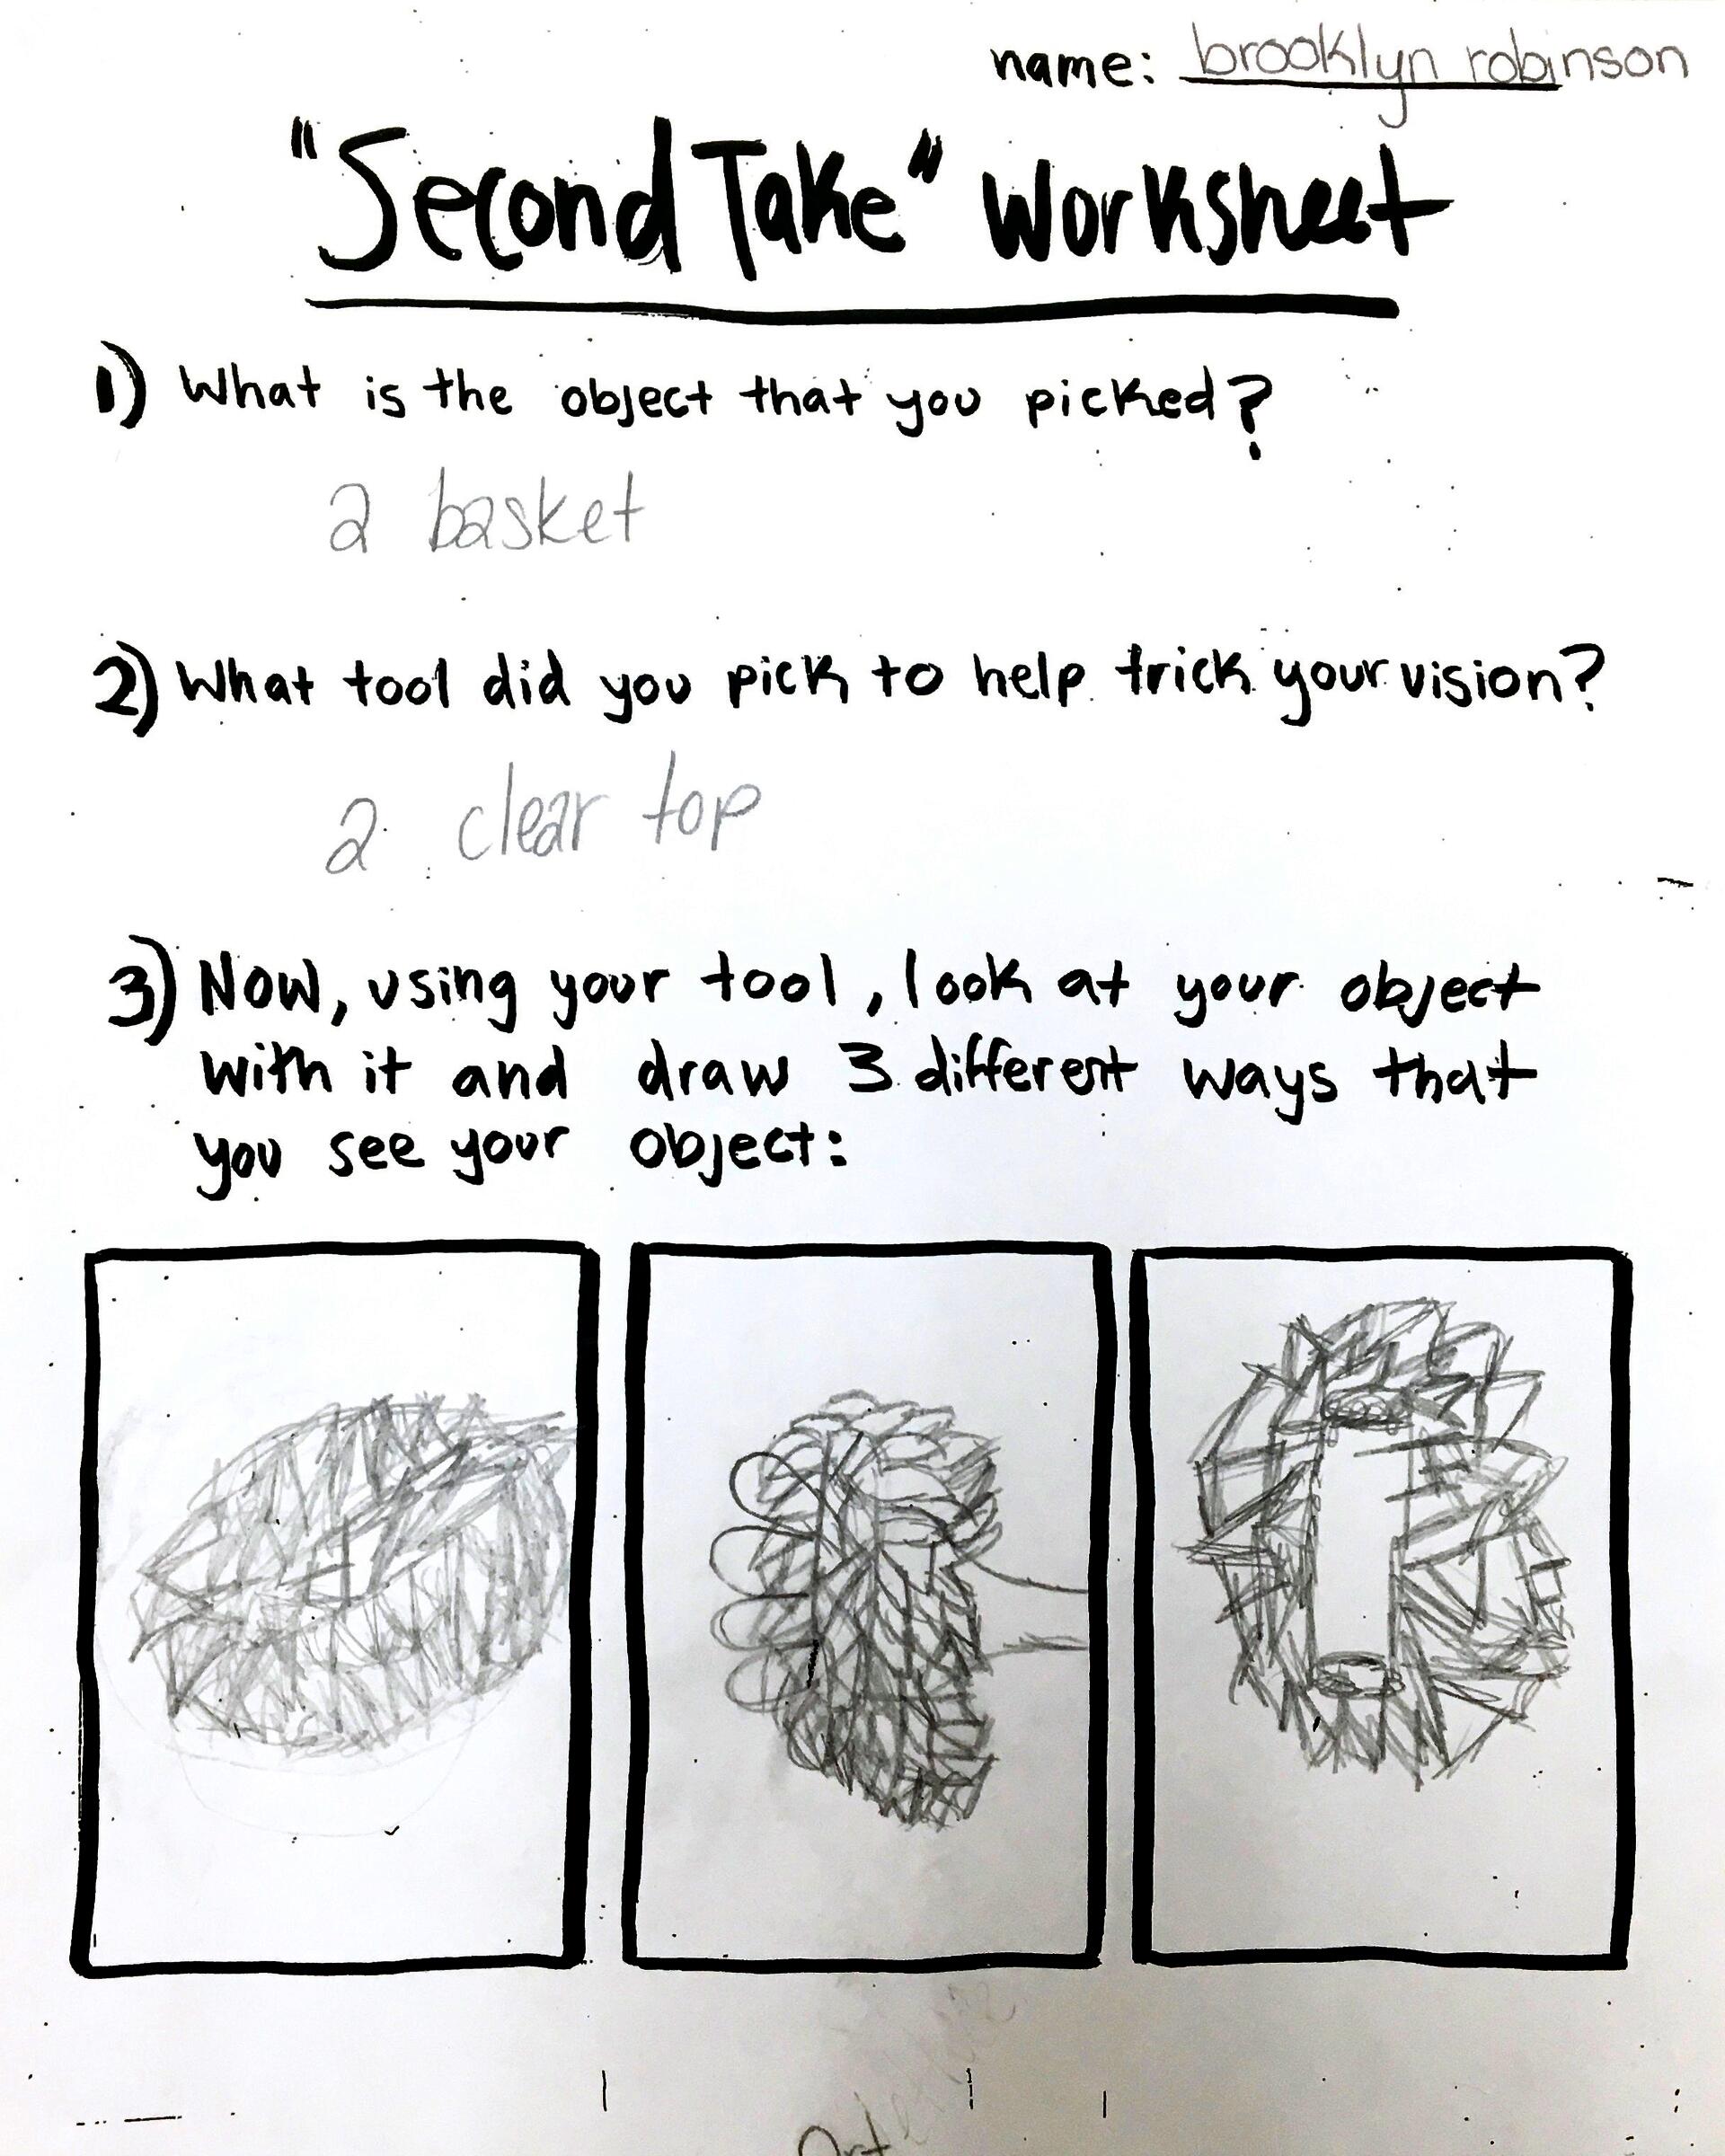 name: brooklyn robinson
"Second Take" Worksheet
1) What is the object that you picked?
a basket
2) What tool did you pick to help trick your vision?
a clear top
3) Now, using your tool, look at your object
with it and draw 3 different ways that
you see your object: